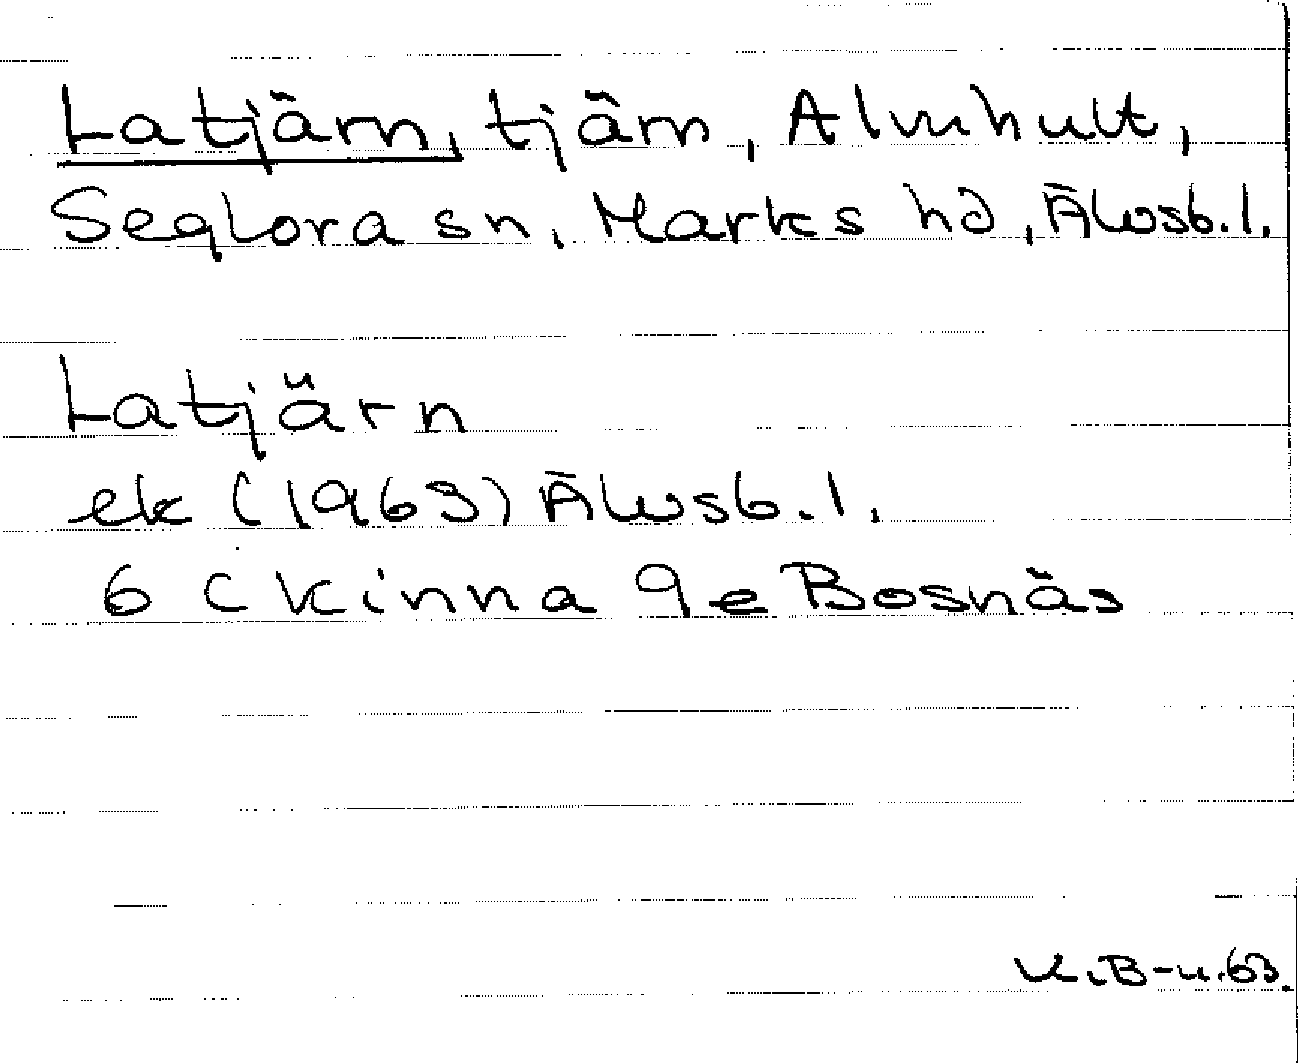 Latjärn, tjärn, Alvhult,
Seglora sn, Marks hd, Älvsb.l.
Latjärn
ek (1963) Älvsb.l.
6 C Kinna 9e Bosnäs
K.B-n.63.